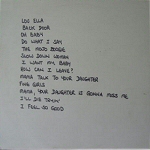 LOS ELLA
BACK DOOR
OH BABY
DO WHAT I SAY
THE MOJO BOOGIE
SLOW DOWN WOMAN
I WANT MY BABY
HOW CAN I LEAVE?
MAMA TALK TO YOUR DAUGHTER
FINE GIRLS
MAMA, YOUR DAUGHTER IS GONNA MISS ME
I'LL DIE TRYIN'
I FEEL SO GOOD